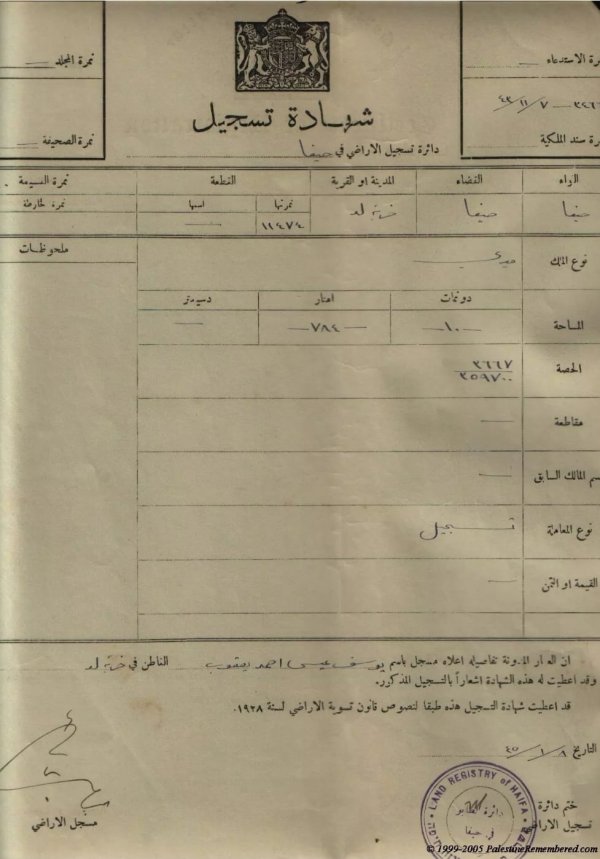 نمرة المجلد —
نمرة الصحيفة —
رة الاستدعاء —
٤٣/١١/٧
رة سند الملكية
شهادة تسجيل
دائرة تسجيل الاراضي في حيفا
اللواء القضاء المدينة او القرية القطعة نمرة القسيمة
نمرتها اسمها نمرة الخارطة
حيفا حيفا خربة لد ١١٤٧٤ —
نوع الملك ميري
ملحوظات
دونمات امتار دسيمتر
المساحة —١٠— —٧٨٤— —
الحصة ٣٦٦٧
٣٥٩٧٠٠
مقاطعة —
سم المالك السابق —
نوع المعاملة تسجيل
القيمة او الثمن —
ان العقار المدونة تفاصيله اعلاه مسجل باسم يوسف عيسى احمد يعقوب القاطن في خربة لد
وقد اعطيت له هذه الشهادة اشعاراً بالتسجيل المذكور.
قد اعطيت شهادة التسجيل هذه طبقا لنصوص قانون تسوية الاراضي لسنة ١٩٢٨.
التاريخ ٤٥/١/٨
ختم دائرة
تسجيل الاراضي
LAND REGISTRY of HAIFA
دائرة الطابو
في حيفا
مسجل الاراضي
© 1999-2005 PalestineRemembered.com